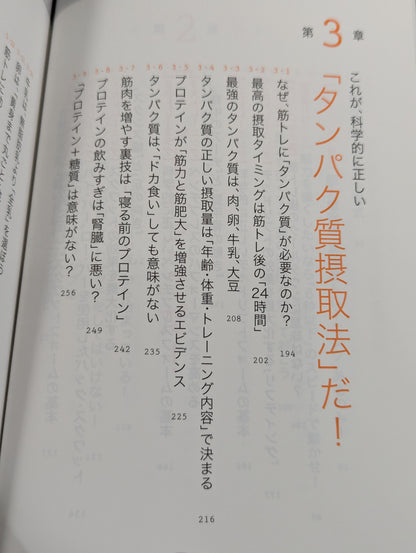 第3章
これが、科学的に正しい
「タンパク質摂取法」だ!
3-1
なぜ、筋トレに「タンパク質」が必要なのか? 194
3-2
最高の摂取タイミングは筋トレ後の「24時間」 202
3-3
最強のタンパク質は、肉、卵、牛乳、大豆 208
3-4
タンパク質の正しい摂取量は「年齢・体重・トレーニング内容」で決まる 216
3-5
プロテインが「筋力と筋肥大」を増強させるエビデンス 225
3-6
タンパク質は、「ドカ食い」しても意味がない 235
3-7
筋肉を増やす裏技は「寝る前のプロテイン」 242
3-8
プロテインの飲みすぎは「腎臓」に悪い? 249
3-9
「プロテイン+糖質」は意味がない? 256